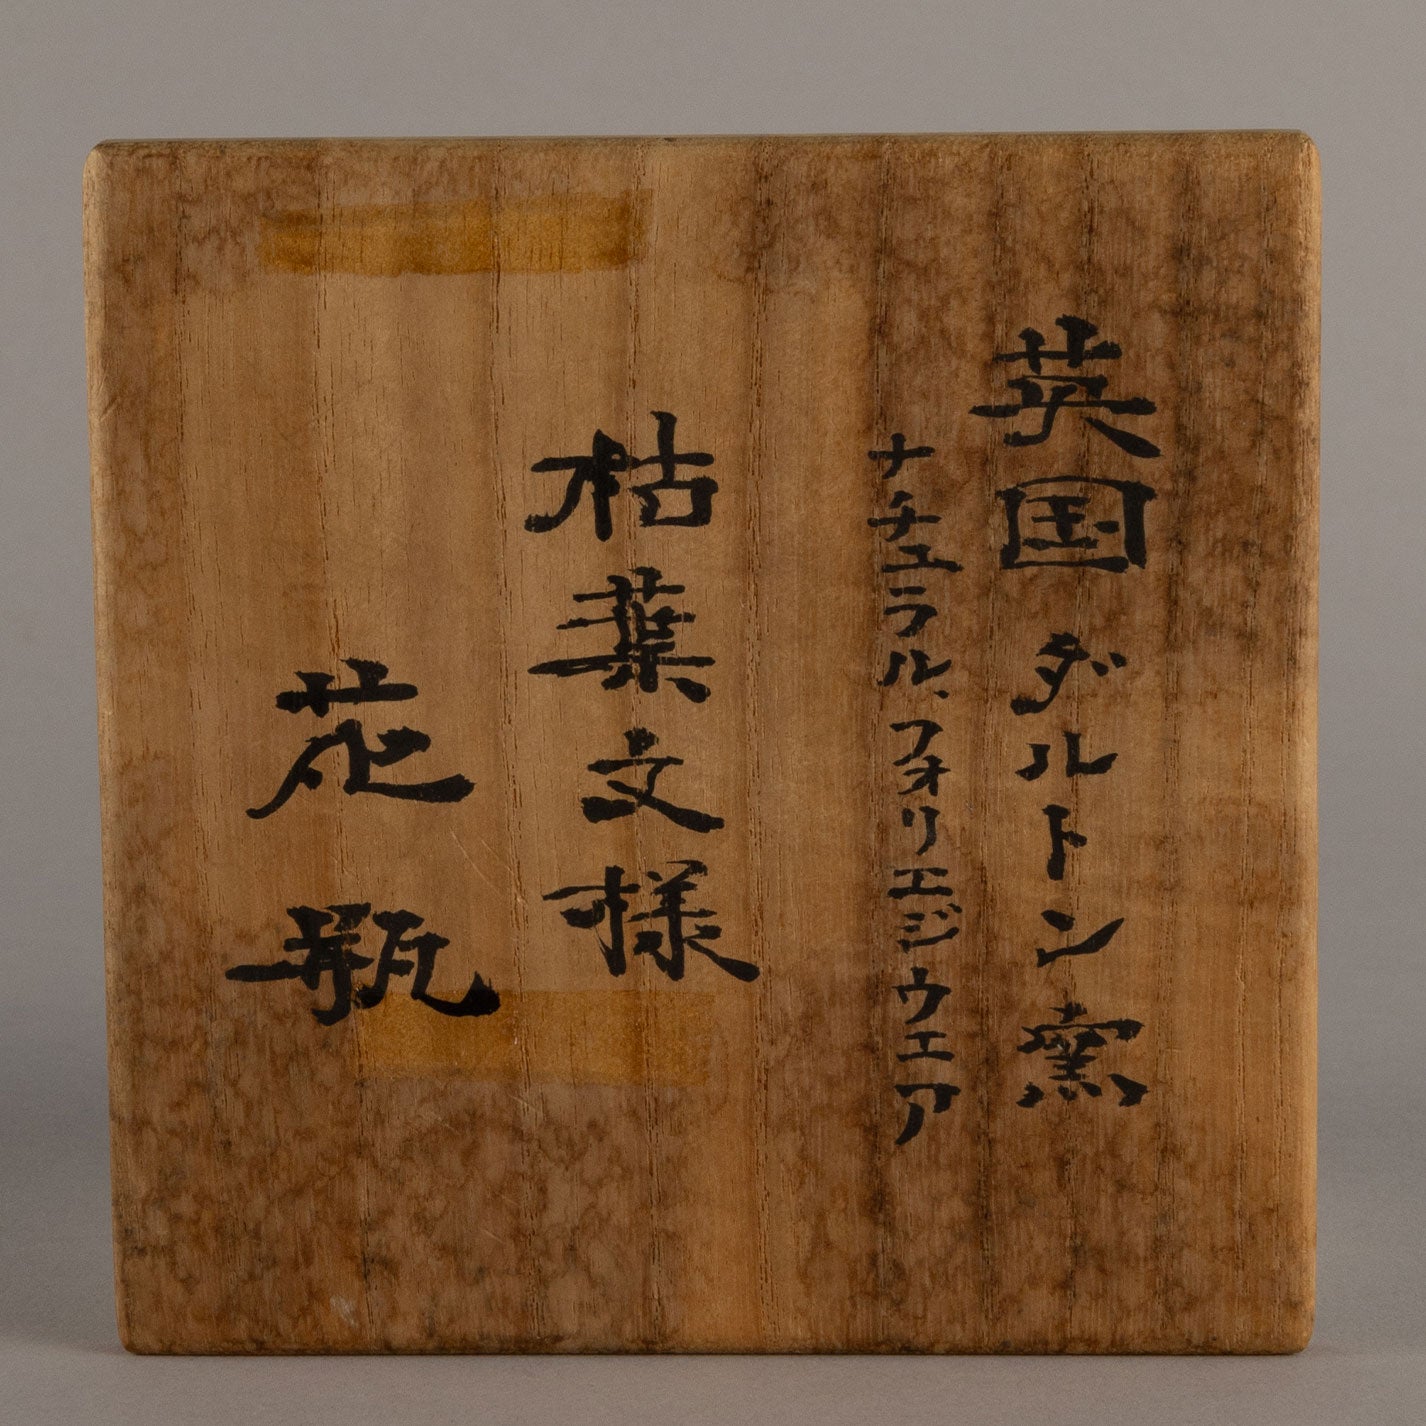 英国ダルトン窯
ナチュラル、フォリエジウェア
枯葉文様
花瓶